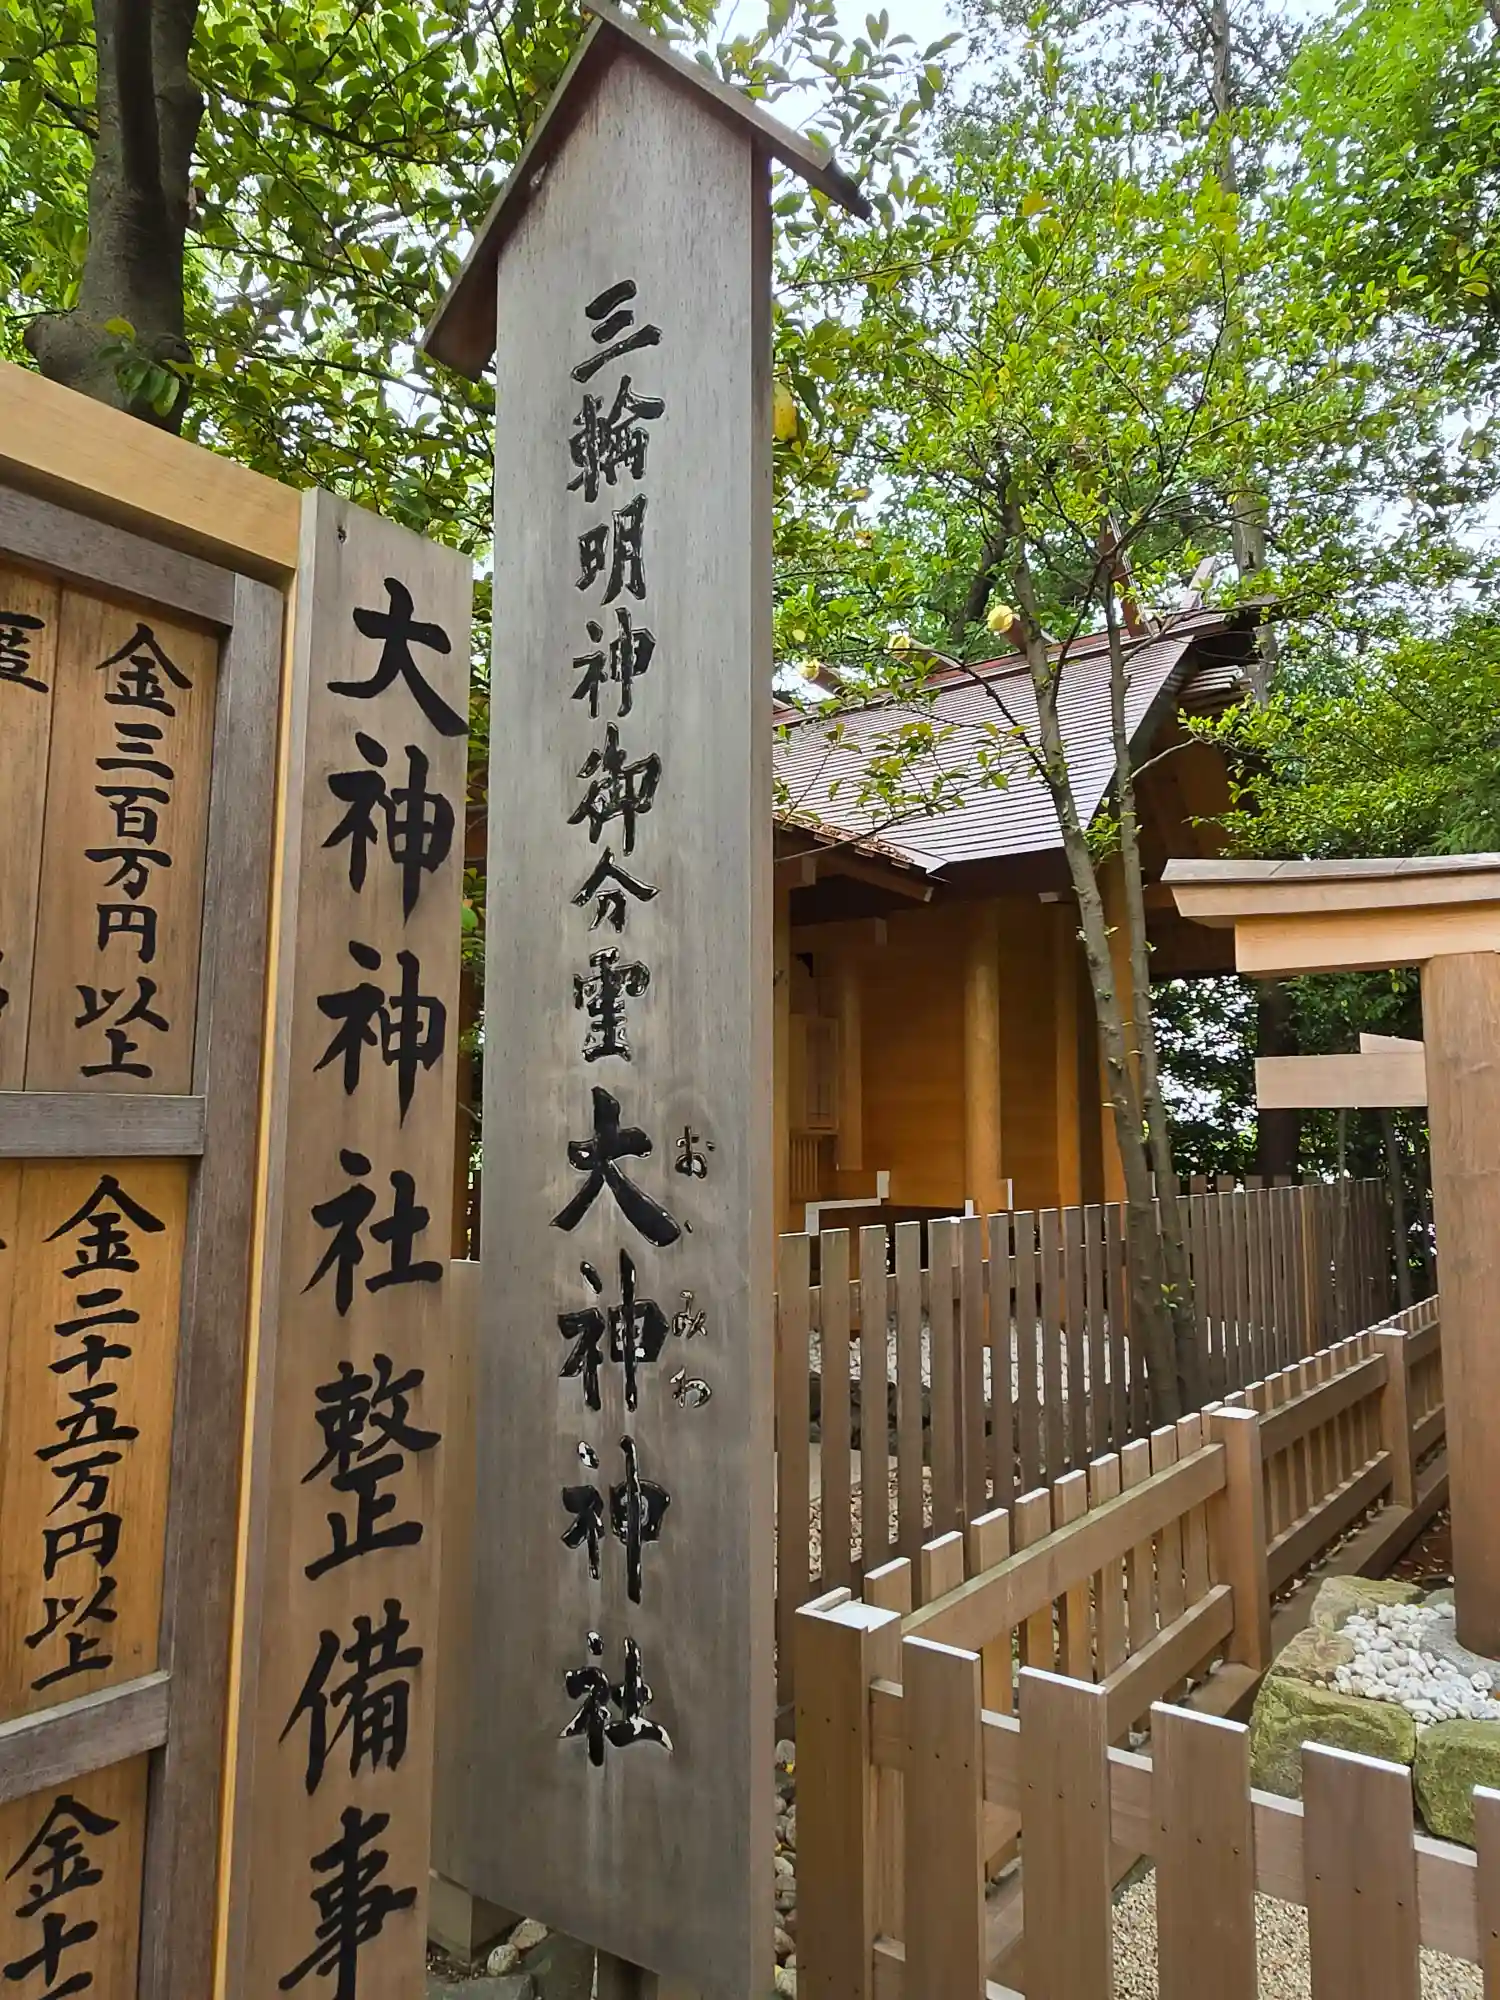 三輪明神御分霊大神神社
おゝみわ
大神神社整備事
金三百万円以上
金二十五万円以上
金十